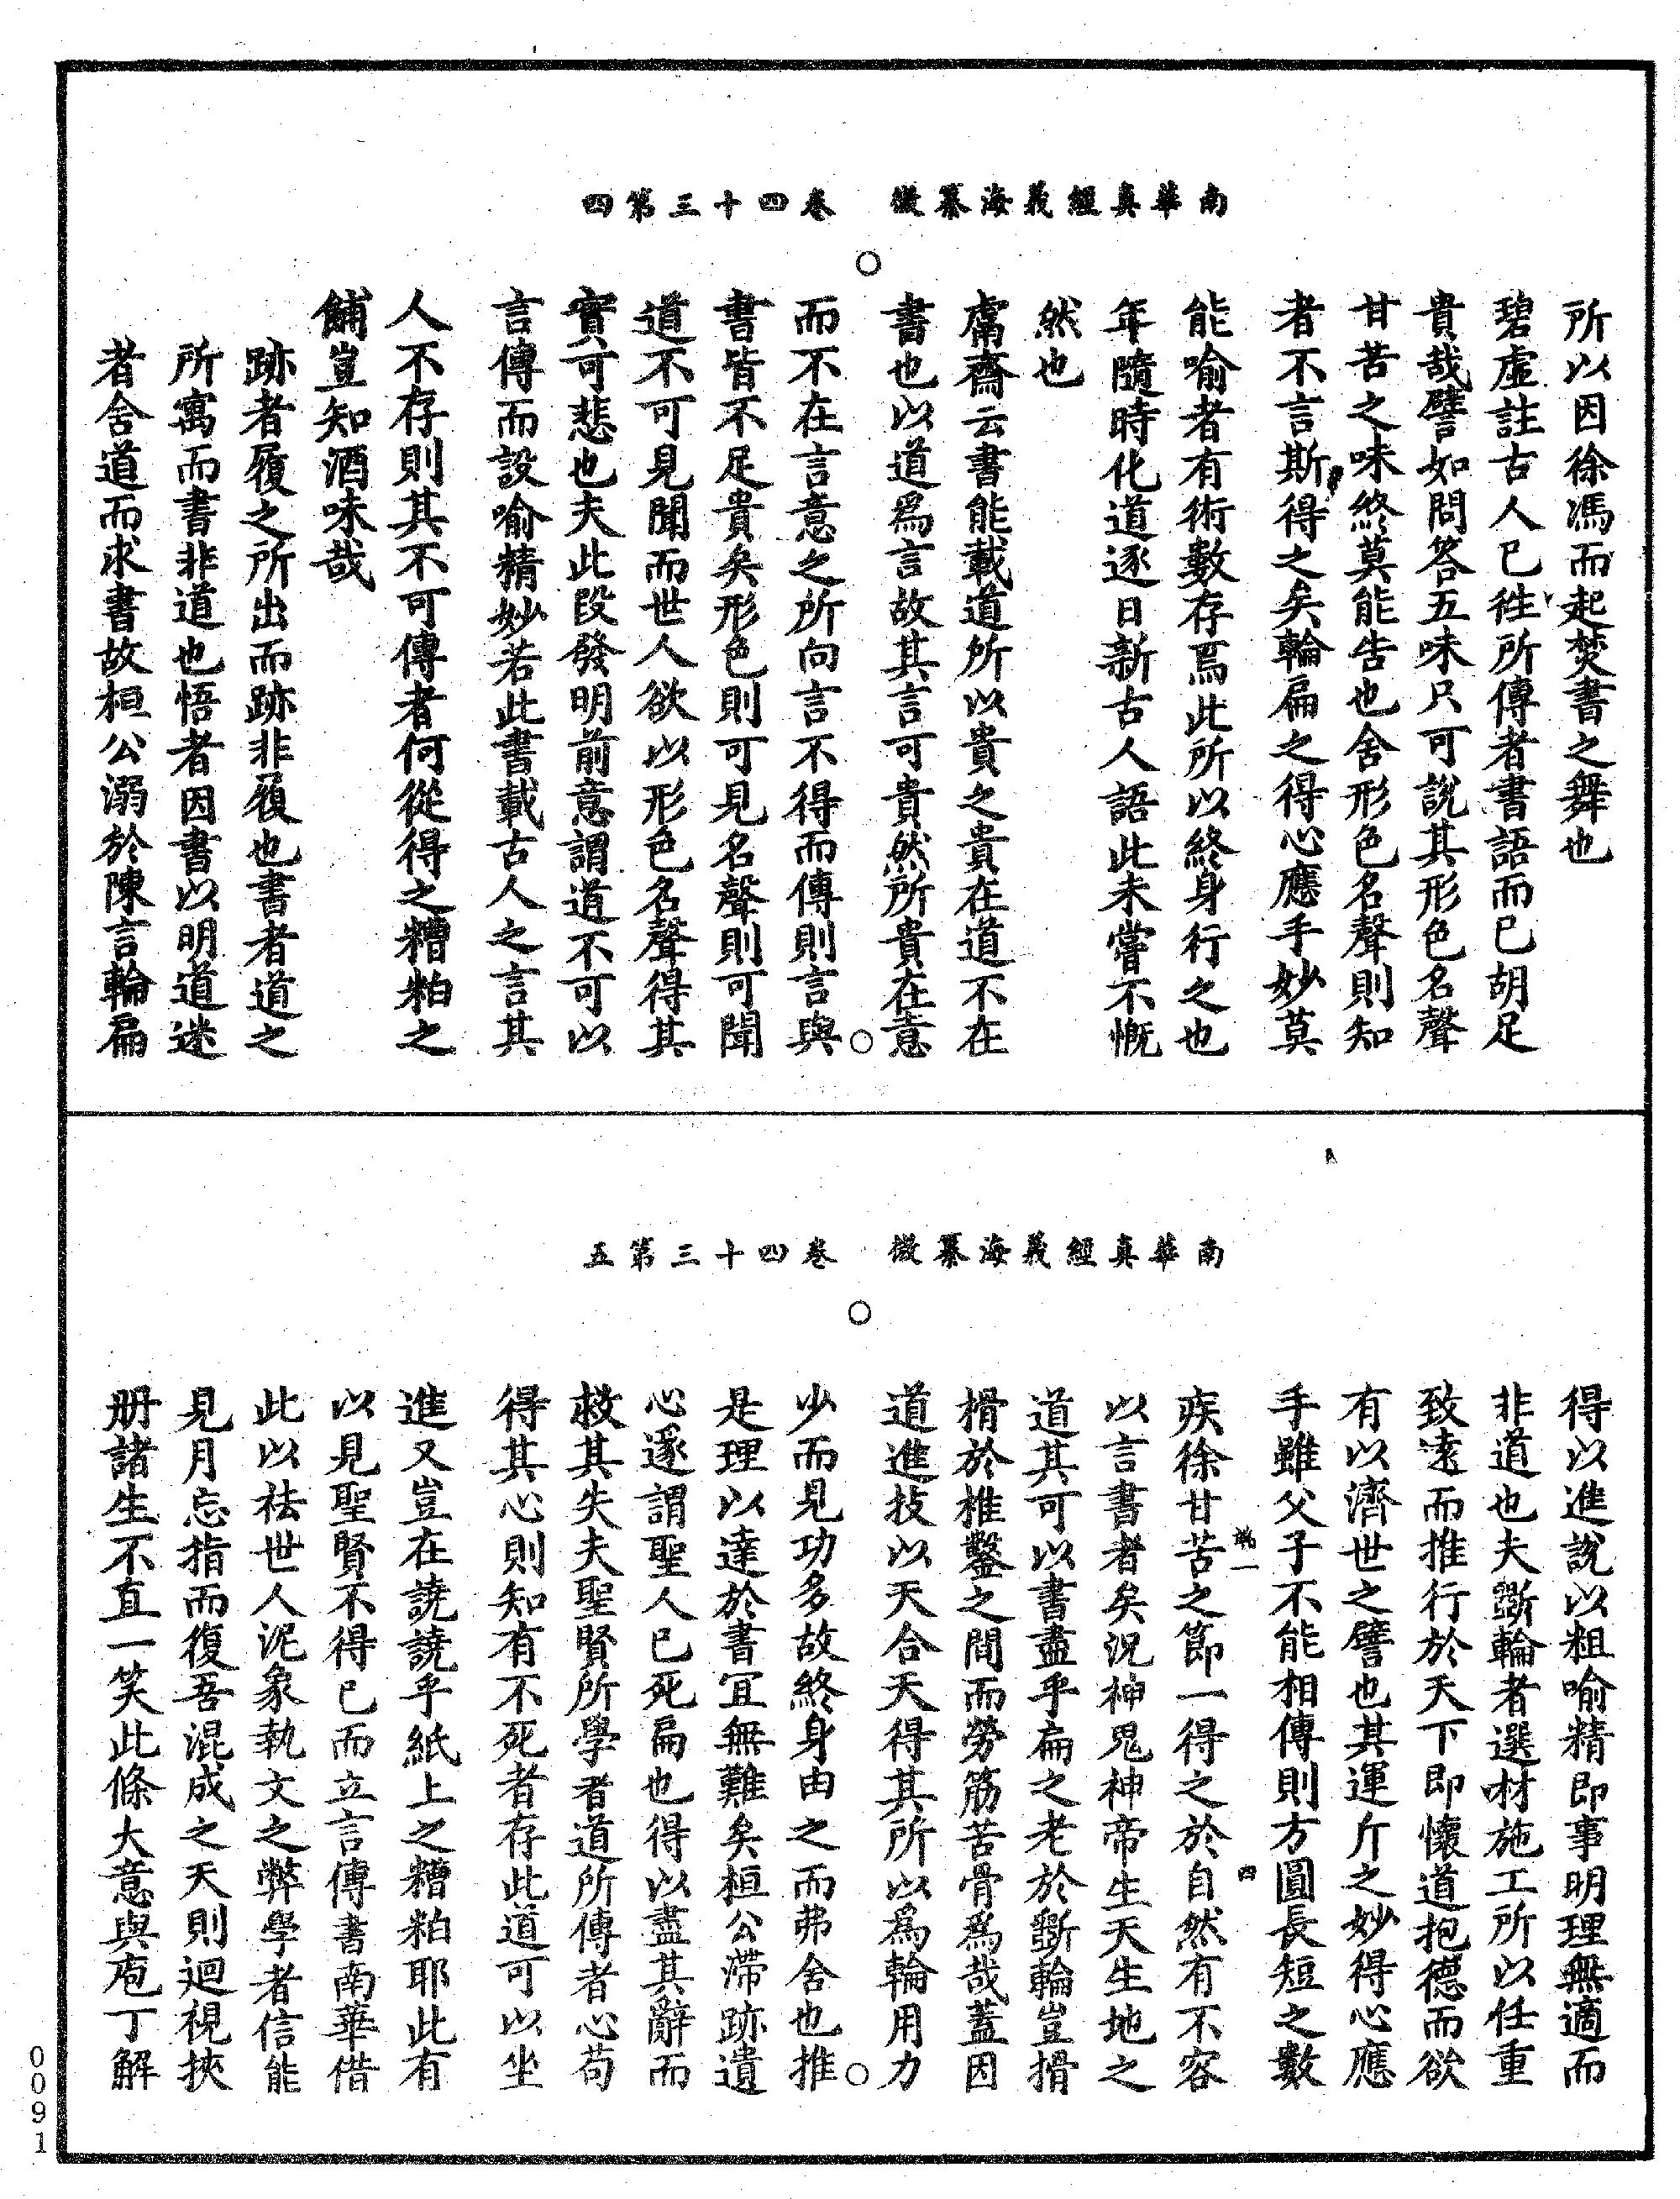 南華真經義海纂微　卷四十三第四
所以因徐馮而起焚書之舞也
碧虛註古人已徃所傳者書語而已胡足
貴哉譬如問答五味只可說其形色名聲
甘苦之味終莫能告也舍形色名聲則知
者不言斯得之矣輪扁之得心應手妙莫
能喻者有術數存焉此所以終身行之也
年隨時化道逐日新古人語此未嘗不慨
然也
鬳齋云書能載道所以貴之貴在道不在
書也以道爲言故其言可貴然所貴在意
而不在言意之所向言不得而傳則言與
書皆不足貴矣形色則可見名聲則可聞
道不可見聞而世人欲以形色名聲得其
實可悲也夫此段發明前意謂道不可以
言傳而設喻精妙若此書載古人之言其
人不存則其不可傳者何從得之糟粕之
餔豈知酒味哉
跡者履之所出而跡非履也書者道之
所寓而書非道也悟者因書以明道迷
者舍道而求書故桓公溺於陳言輪扁
南華真經義海纂微　卷四十三第五
得以進說以粗喻精即事明理無適而
非道也夫斲輪者選材施工所以任重
致遠而推行於天下即懷道抱德而欲
有以濟世之譬也其運斤之妙得心應
手雖父子不能相傳則方圓長短之數
疾徐甘苦之節一得之於自然有不容
以言書者矣況神鬼神帝生天生地之
道其可以書盡乎扁之老於斲輪豈搰
搰於椎鑿之間而勞筋苦骨爲哉蓋因
道進技以天合天得其所以爲輪用力
少而見功多故終身由之而弗舍也推
是理以達於書宜無難矣桓公滯跡遺
心遂謂聖人已死扁也得以盡其辭而
救其失夫聖賢所學者道所傳者心苟
得其心則知有不死者存此道可以坐
進又豈在譊譊乎紙上之糟粕耶此有
以見聖賢不得已而立言傳書南華借
此以祛世人泥象執文之弊學者信能
見月忘指而復吾混成之天則迴視挾
册諸生不直一笑此條大意與庖丁解
0091